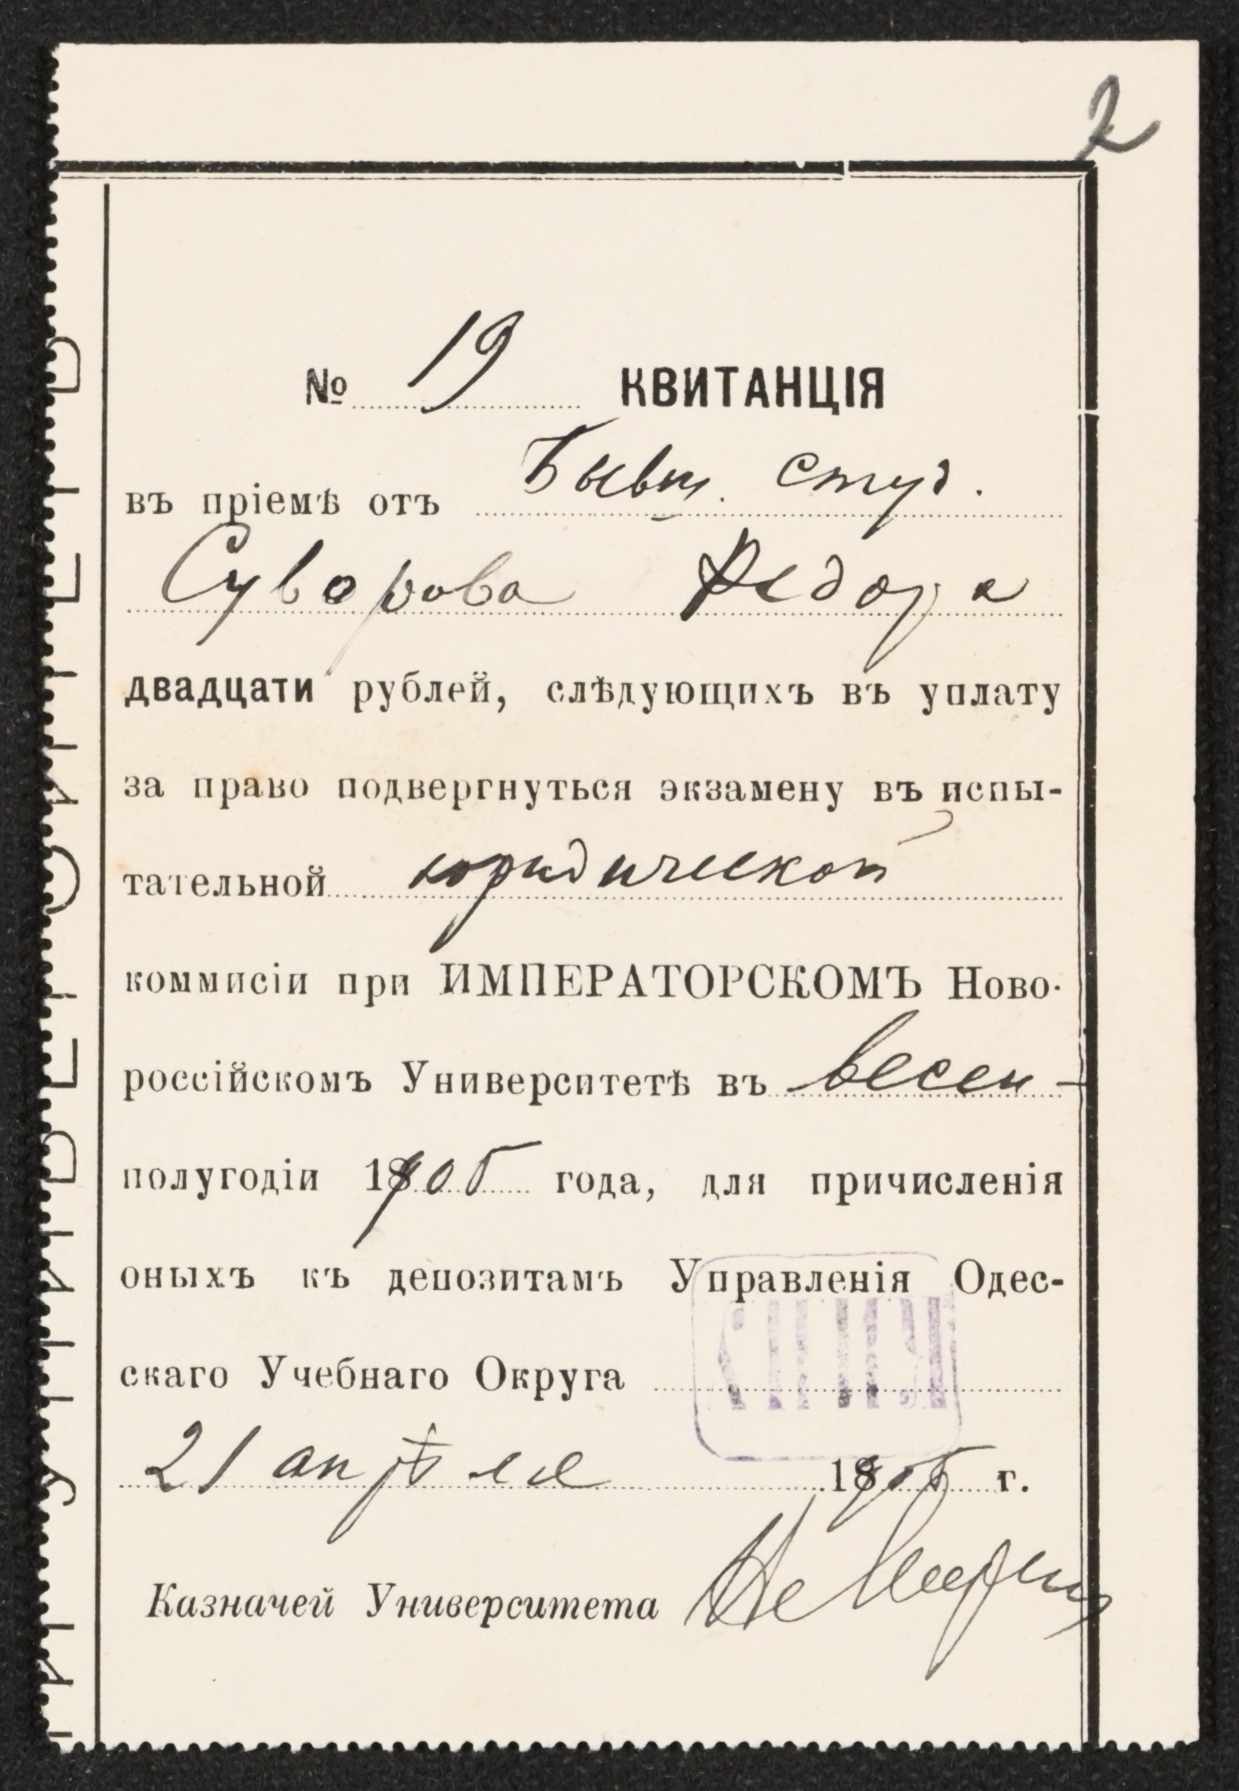 2
№ 19 КВИТАНЦІЯ
въ пріемѣ отъ Бывш. студ.
Суворова Федора
двадцати рублей, слѣдующихъ въ уплату
за право подвергнуться экзамену въ испы-
тательной юридической
коммисіи при ИМПЕРАТОРСКОМЪ Ново-
россійскомъ Университетѣ въ весен-
полугодіи 1905 года, для причисленія
оныхъ къ депозитамъ Управленія Одес-
скаго Учебнаго Округа
21 апрѣля 1905 г.
Казначей Университета